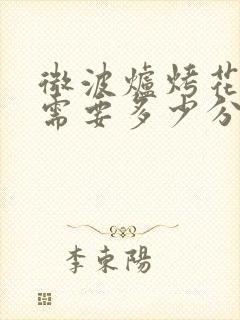 微波爐烤花
需要多少分
李東陽